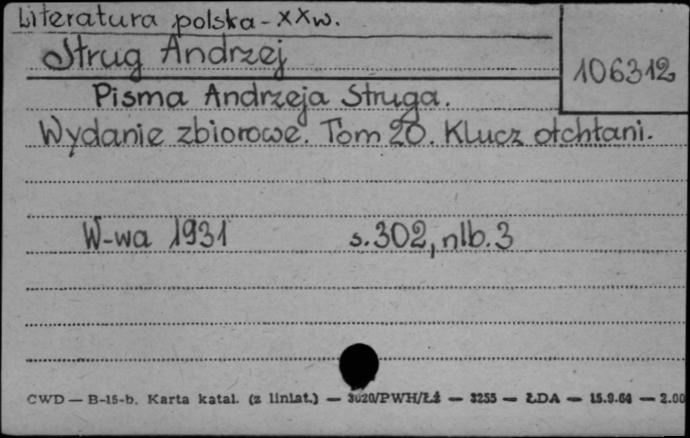 Literatura polska - XXw.
Strug Andrzej
106312
Pisma Andrzeja Struga.
Wydanie zbiorowe. Tom 20. Klucz otchłani.
W-wa 1931 s. 302, nlb. 3
CWD — B-15-b. Karta katal. (z liniat.) — 3020/PWH/Łź — 3255 — ŁDA — 15.9.64 — 2.00